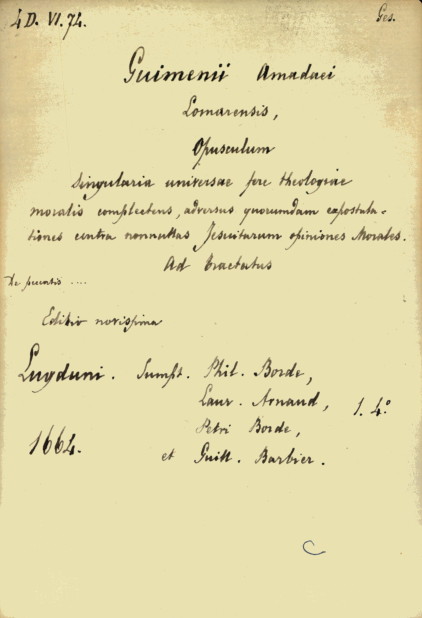 4 D. VI. 74. Ges.
Guimenii Amadaei
Lomarensis,
Opusculum
Singularia universae fere theologiae
moralis complectens, adversus quorumdam expostula-
tiones contra nonnullas Jesuitarum opiniones Morales.
Ad tractatus
De peccatis ....
Editio novissima
Lugduni. Sumpt. Phil. Borde,
Laur. Arnaud, 1. 4.º
Petri Borde,
1664. et Guill. Barbier.